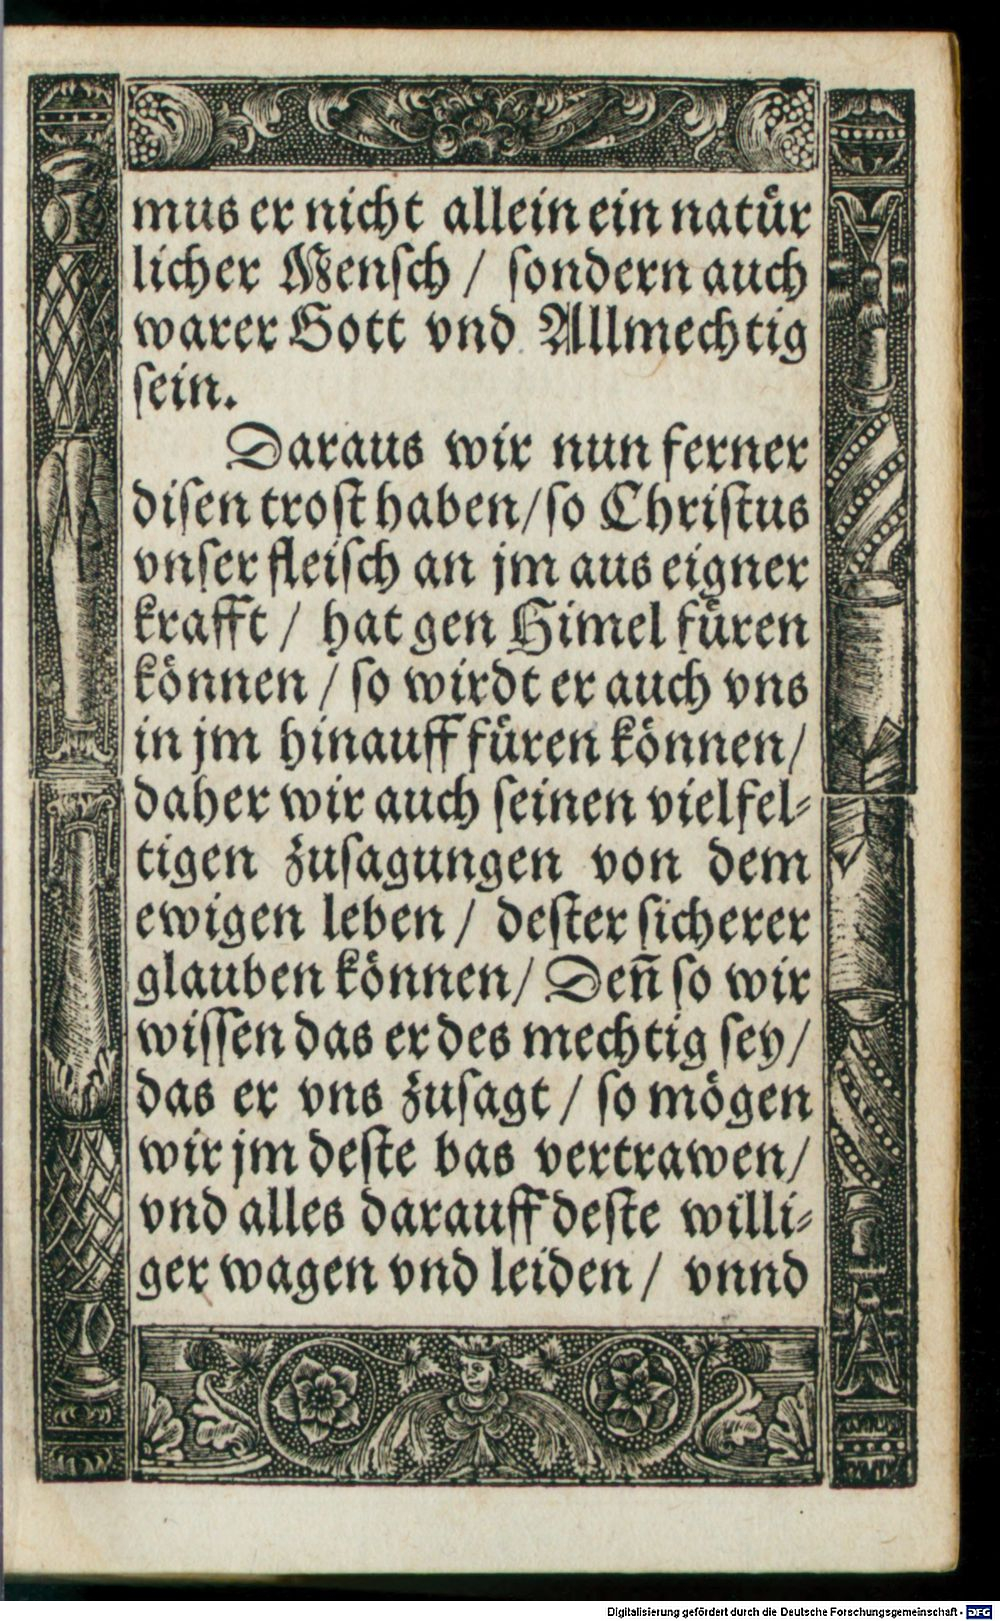 mus er nicht allein ein natür
licher Mensch / sondern auch
warer Gott vnd Allmechtig
sein.
Daraus wir nun ferner
disen trost haben/so Christus
vnser fleisch an jm aus eigner
krafft / hat gen Himel füren
können / so wirdt er auch vns
in jm hinauff füren können/
daher wir auch seinen vielfel⸗
tigen zusagungen von dem
ewigen leben / dester sicherer
glauben können/ Deñ so wir
wissen das er des mechtig sey/
das er vns zusagt / so mögen
wir jm deste bas vertrawen/
vnd alles darauff deste willi⸗
ger wagen vnd leiden / vnnd
Digitalisierung gefördert durch die Deutsche Forschungsgemeinschaft - DFG